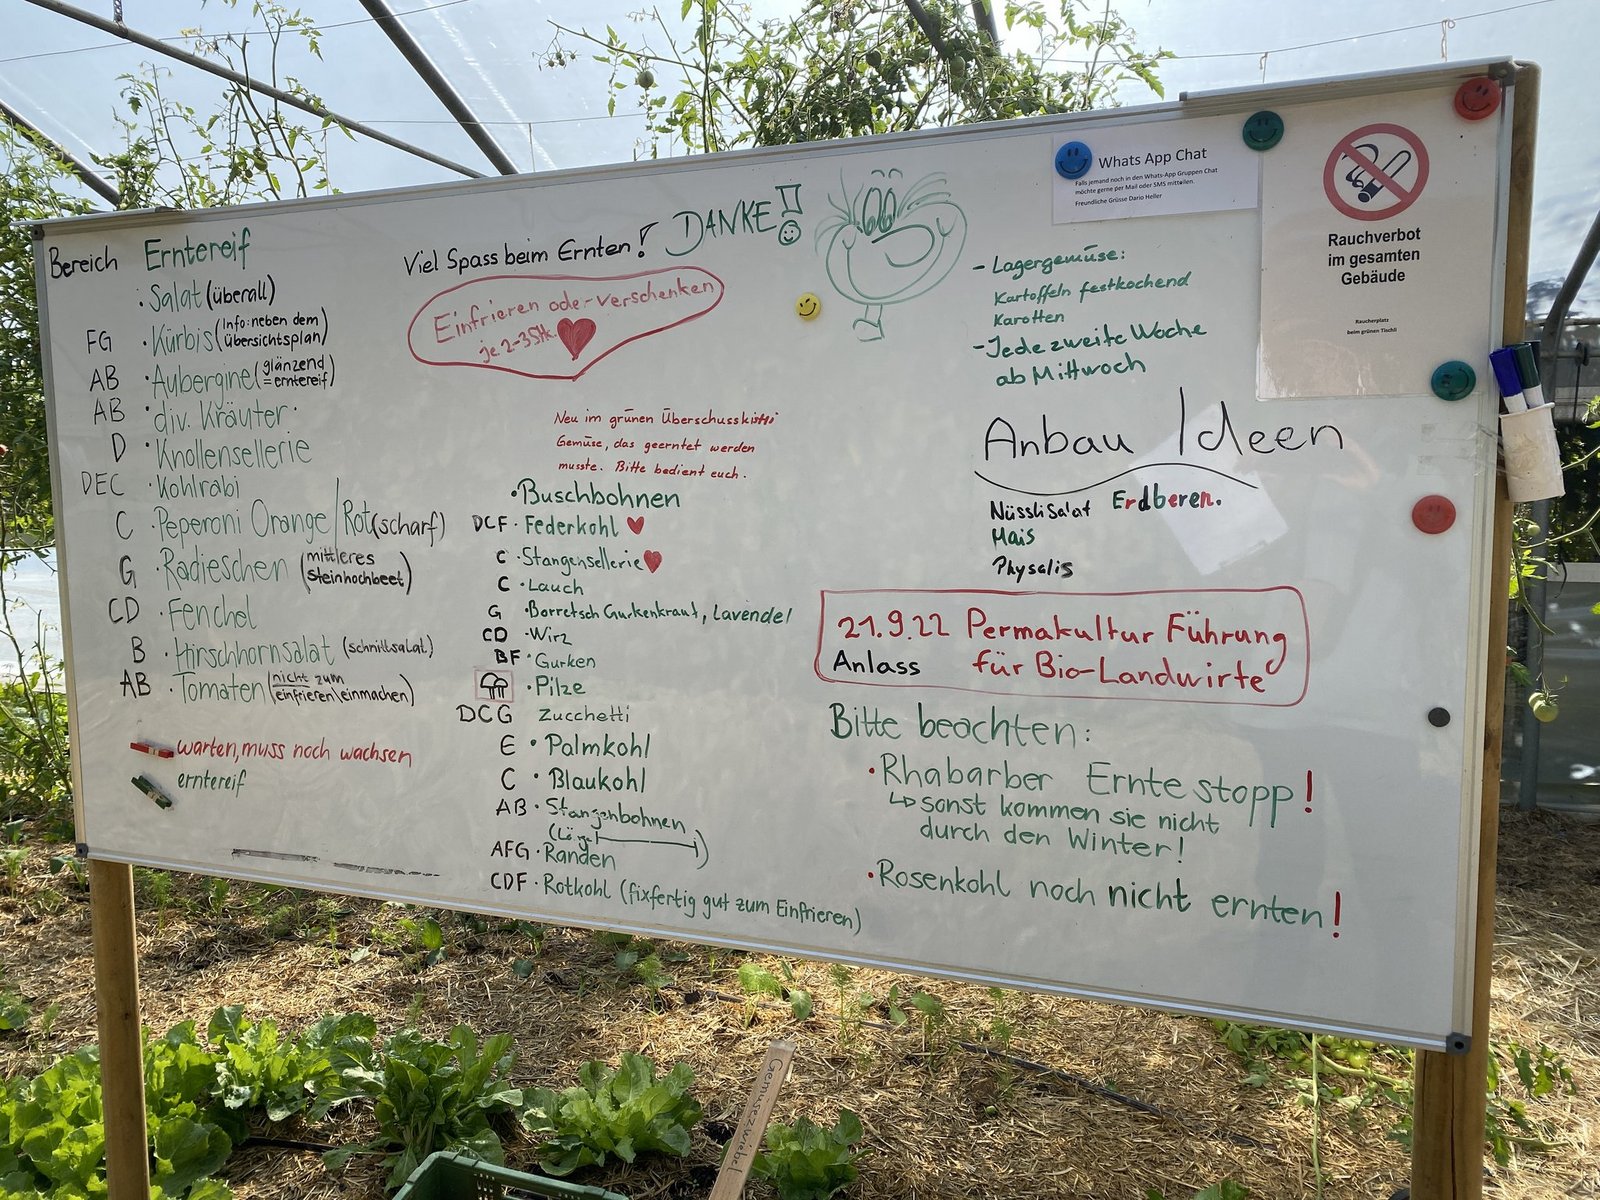 Bereich Erntereif
· Salat (überall)
FG · Kürbis (Info: neben dem
übersichtsplan)
AB · Aubergine (glänzend
= erntereif)
AB · div. Kräuter ·
D · Knollensellerie
DEC · Kohlrabi
C · Peperoni Orange / Rot (scharf)
G · Radieschen (mittleres
Steinhochbeet)
CD · Fenchel
B · Hirschhornsalat (schnittsalat)
AB · Tomaten (nicht zum
einfrieren/einmachen)
warten, muss noch wachsen
erntereif
Viel Spass beim Ernten! DANKE!
Einfrieren oder verschenken
je 2-3 Stk.
Neu im grünen Überschusskistli
Gemüse, das geerntet werden
musste. Bitte bedient euch.
· Buschbohnen
DCF · Federkohl
C · Stangensellerie
C · Lauch
G · Borretsch Gurkenkraut, Lavendel
CD · Wirz
BF · Gurken
· Pilze
DCG Zucchetti
E · Palmkohl
C · Blaukohl
AB · Stangenbohnen
AFG · Randen
CDF · Rotkohl (fixfertig gut zum Einfrieren)
Whats App Chat
Falls jemand noch in den Whats-App Gruppen Chat
möchte gerne per Mail oder SMS mitteilen.
Freundliche Grüsse Dario Heller
Rauchverbot
im gesamten
Gebäude
Raucherplatz
beim grünen Tischli
- Lagergemüse:
Kartoffeln festkochend
Karotten
- Jede zweite Woche
ab Mittwoch
Anbau Ideen
Nüsslisalat Erdberen.
Mais
Physalis
21.9.22 Permakultur Führung
Anlass für Bio-Landwirte
Bitte beachten:
· Rhabarber Ernte stopp!
↳ sonst kommen sie nicht
durch den Winter!
· Rosenkohl noch nicht ernten!
Gemüsezwiebel